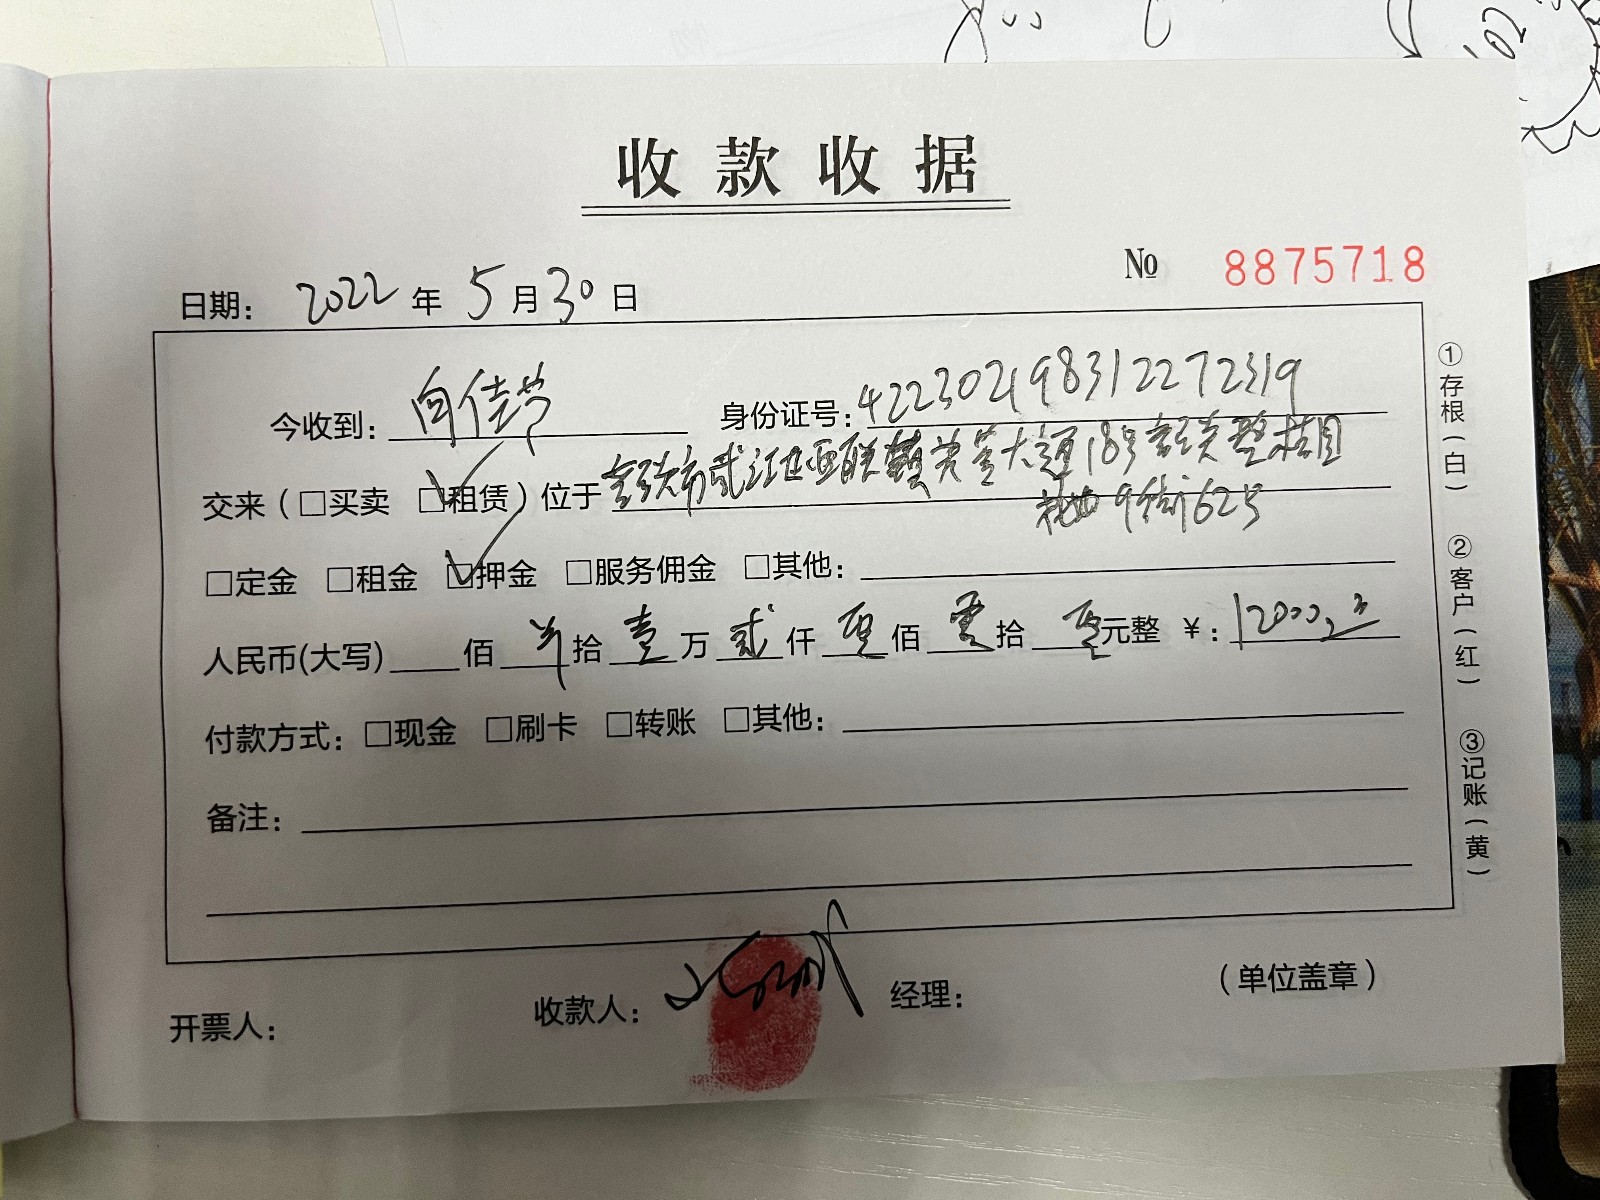 收款收据
№ 8875718
日期： 2022 年 5 月 30 日
今收到： 向佳节 身份证号：422302198312272319
交来（□买卖 ☑租赁）位于 市武江区西联镇芙蓉大道18号
9街625
□定金 □租金 ☑押金 □服务佣金 □其他：
人民币(大写) 佰 拾 壹 万 贰 仟 零 佰 零 拾 零 元整 ￥：12000
付款方式：□现金 □刷卡 □转账 □其他：
备注：
开票人： 收款人： 经理： （单位盖章）
①存根（白）
②客户（红）
③记账（黄）